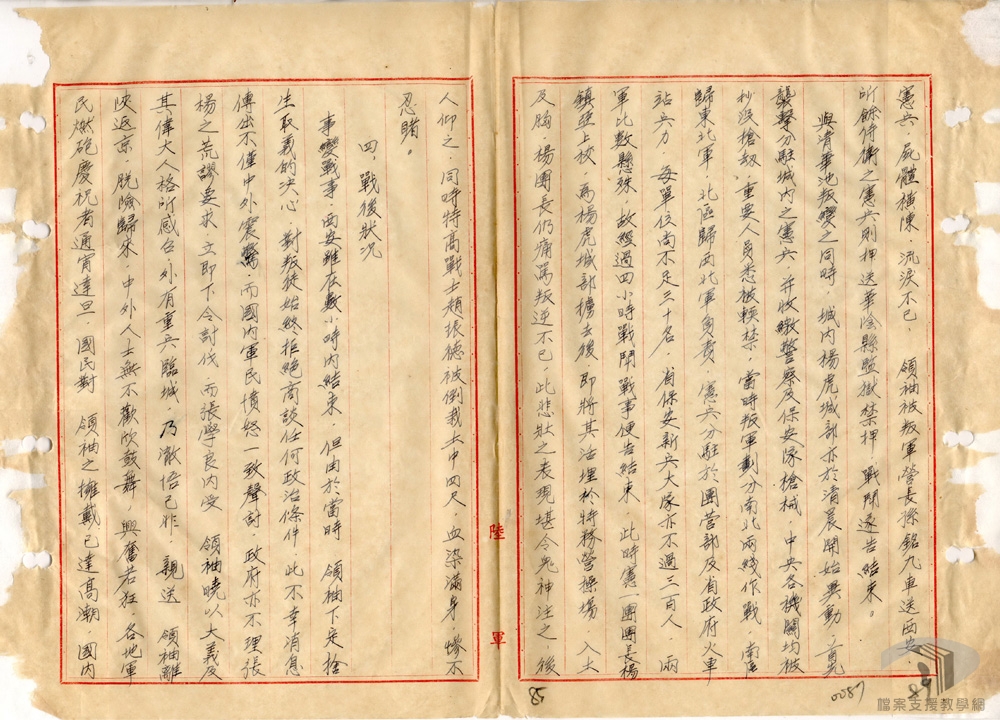 憲兵，屍體橫陳，流淚不已， 領袖被叛軍營長孫銘九車送西安，
所餘侍衛之憲兵則押送華陰縣監獄禁押，戰鬪遂告結束。
與清華池叛變之同時，城內楊虎城部亦於清晨開始異動，首先
襲擊分駐城內之憲兵，并收繳警察及保安隊槍械，中央各機關均被
抄沒槍劫，重要人員悉被輭禁，當時叛軍劃分南北兩綫作戰，南區
歸東北軍，北區歸西北軍負責，憲兵分駐於團營部及省政府火車
站兵力，每單位尚不足三十名，省保安新兵大隊亦不過三百人 兩
軍比數懸殊，故經過四小時戰鬥戰事便告結束，此時憲一團團長楊
鎮亞上校，為楊虎城部擄去後，即將其活埋於特務營操場，入土
及胸，楊團長仍痛罵叛逆不已，此悲壯之表現堪令鬼神泣之，後
人仰之，同時特高戰士趙振德被倒栽土中四尺，血染滿身，慘不
忍睹。
四、戰後狀況
事變戰事，西安雖在數小時內結束，但由於當時 領袖下定捨
生取義的決心，對叛徒始終拒絕商談任何政治條件，此不幸消息
傳出不僅中外震驚，而國內軍民憤怒一致聲討，政府亦不理張
楊之荒謬要求，立即下令討伐，而張學良內受 領袖曉以大義及
其偉大人格所感召，外有重兵臨城，乃澈悟已非，親送 領袖離
陝返京，脫險歸來，中外人士無不歡欣鼓舞，興奮若狂，各地軍
民燃砲慶祝者通宵達旦，國民對 領袖之擁戴已達高潮，國內
陸軍
85
0087
84
檔案支援教學網